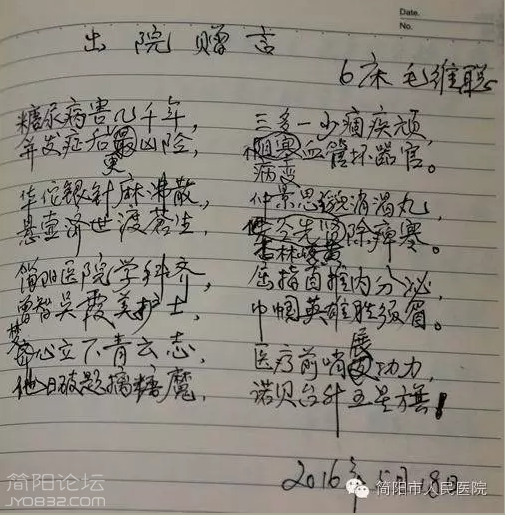 Date.
No.
出院赠言
6床 毛维聪
糖尿病害几千年， 三多一少痼疾顽，
并发症后更凶险， 阻塞血管坏器官。
病变
华佗银针麻沸散， 仲景思邈消渴丸，
悬壶济世渡苍生， 杏林 除痹寒。
简阳医院学科齐， 屈指首推内分泌，
曾智吴霞美护士， 巾帼英雄胜须眉。
心立下青云志， 医疗前哨展功力，
他日破题擒糖魔， 诺贝台升五星旗！
2016年5月18日
简阳论坛
JY0832.COM
简阳市人民医院